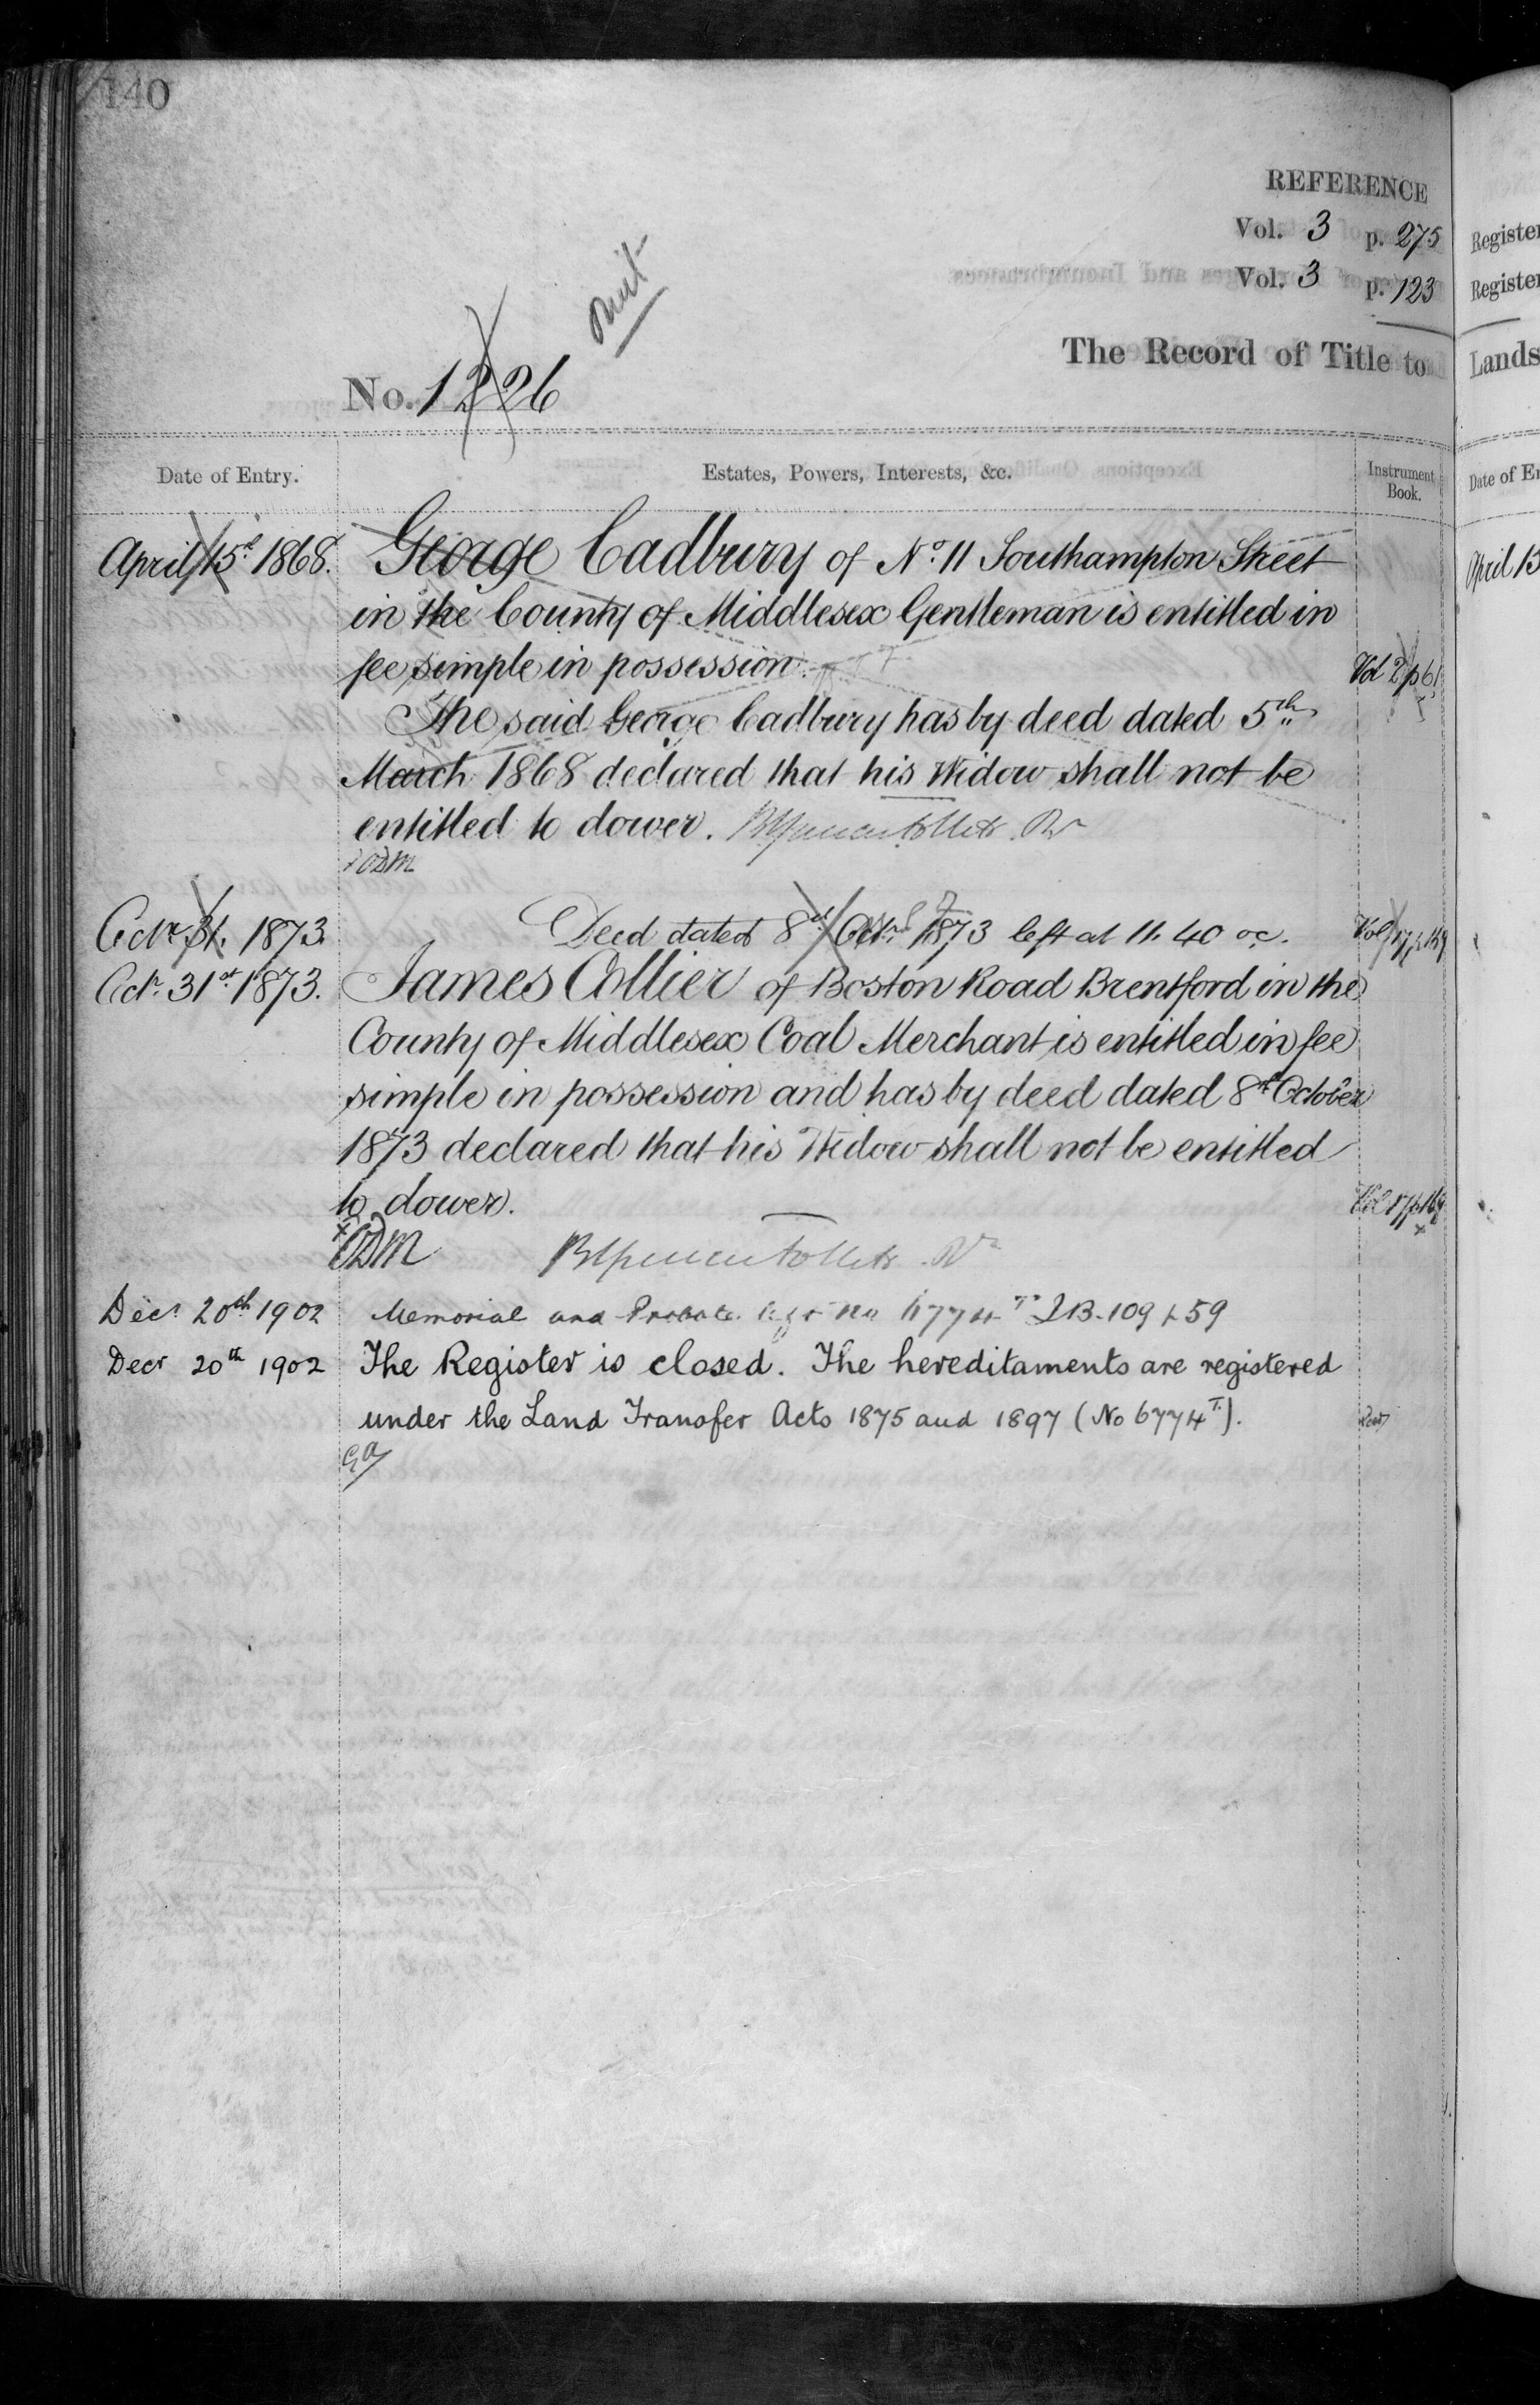 140
REFERENCE
Vol. 3 p. 275
Vol. 3 p. 123
The Record of Title to
omit
No. 1226
Date of Entry.
Estates, Powers, Interests, &c.
Instrument Book.
April 15th 1868. George Cadbury of No. 11 Southampton Street
in the County of Middlesex Gentleman is entitled in
fee simple in possession.
Vol 2 p 61
The said George Cadbury has by deed dated 5th
March 1868 declared that his Widow shall not be
entitled to dower.
Octr. 31. 1873. Deed dated 8th Octr. 1873 left at 11.40 oc.
Octr. 31st 1873. James Collier of Boston Road Brentford in the
County of Middlesex Coal Merchant is entitled in fee
simple in possession and has by deed dated 8th October
1873 declared that his Widow shall not be entitled
to dower.
Decr 20th 1902 Memorial and Probate
Decr 20th 1902 The Register is closed. The hereditaments are registered
under the Land Transfer Acts 1875 and 1897 (No 6774 T.).
Register
Register
Lands
Date of En
April 15